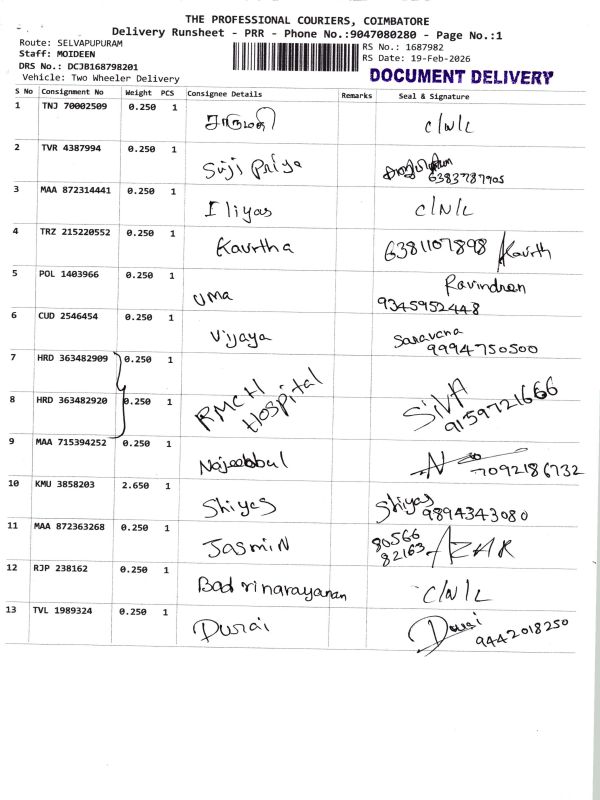 THE PROFESSIONAL COURIERS, COIMBATORE
Delivery Runsheet - PRR - Phone No.:9047080280 - Page No.:1
Route: SELVAPUPURAM
Staff: MOIDEEN
DRS No.: DCJB168798201
Vehicle: Two Wheeler Delivery
RS No.: 1687982
RS Date: 19-Feb-2026
DOCUMENT DELIVERY
S No Consignment No Weight PCS Consignee Details Remarks Seal & Signature
1 TNJ 70002509 0.250 1 சாருமதி C/N/L
2 TVR 4387994 0.250 1 Suji Priya 6383787905
3 MAA 872314441 0.250 1 Iliyas C/N/L
4 TRZ 215220552 0.250 1 Kavrtha 6381107898 Kavrth
5 POL 1403966 0.250 1 Uma Ravindran
9345952448
6 CUD 2546454 0.250 1 Vijaya Saravana
9994750500
7 HRD 363482909 0.250 1 RMCH Hospital SilVA
8 HRD 363482920 0.250 1 9159721666
9 MAA 715394252 0.250 1 Najeebbul 7092186732
10 KMU 3858203 2.650 1 Shiyas Shiyas
9894343080
11 MAA 872363268 0.250 1 Jasmin 80566
82163 AZAR
12 RJP 238162 0.250 1 Badrinarayanan C/N/L
13 TVL 1989324 0.250 1 Durai Durai
9442018250